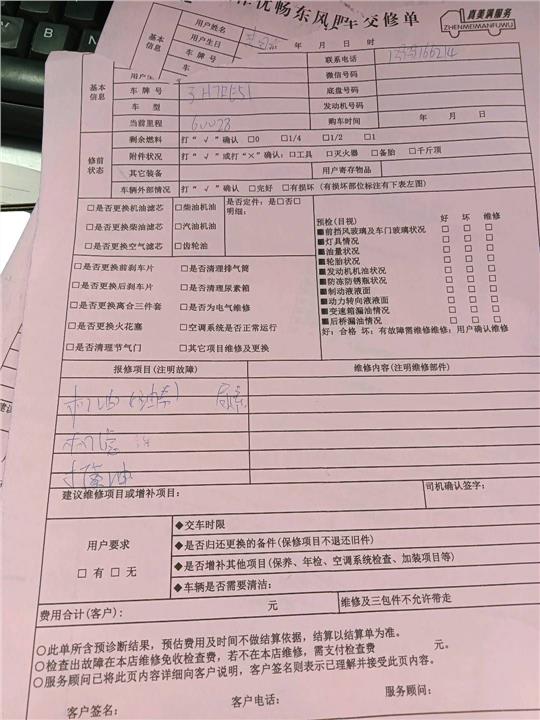 优畅东风
车交修单
真美满服务
ZHENMEIMANFUWU
基本信息
用户姓名
用户生日 年 月 日 时
车牌号
联系电话
微信号码
基本信息
车牌号
底盘号码
车 型
发动机号码
当前里程 60028
购车时间 年 月 日
修前状态
剩余燃料 打“√”确认 □0 □1/4 □1/2 □1
附件状况 打“√”或打“×”确认:□工具 □灭火器 □备胎 □千斤顶
其它装备 用户寄存物品
车辆外部情况 打“√”确认 □完好 □有损坏(有损坏部位标注有下表左图)
□是否更换机油滤芯 □柴油机油 是否定件:是□否□
明细:
□是否更换柴油滤芯 □汽油机油
□是否更换空气滤芯 □齿轮油
□是否更换前刹车片 □是否清理排气筒
□是否更换后刹车片 □是否清理尿素箱
□是否更换离合三件套 □是否为电气维修
□是否更换火花塞 □空调系统是否正常运行
□是否清理节气门 □其它项目维修及更换
预检(目视) 好 坏 维修
■前挡风玻璃及车门玻璃状况 □ □ □
■灯具情况 □ □ □
■油量状况 □ □ □
■轮胎状况 □ □ □
■发动机机油状况 □ □ □
■防冻防锈瓶状况 □ □ □
■制动液液面 □ □ □
■动力转向液液面 □ □ □
■变速箱漏油情况 □ □ □
■后桥漏油情况 □ □ □
好:合格 坏:有故障需维修维修:用户确认维修
报修项目(注明故障) 维修内容(注明维修部件)
机油
机滤
建议维修项目或增补项目:
司机确认签字:
用户要求
□ 有 □ 无
◆交车时限
◆是否归还更换的备件(保修项目不退还旧件)
◆是否增补其他项目(保养、年检、空调系统检查、加装项目等)
◆车辆是否需要清洁:
费用合计(客户): 元 维修及三包件不允许带走
○此单所含预诊断结果,预估费用及时间不做结算依据,结算以结算单为准。
○检查出故障在本店维修免收检查费,若不在本店维修,需支付检查费 元。
○服务顾问已将此页内容详细向客户说明,客户签名则表示已理解并接受此页内容。
客户签名: 客户电话: 服务顾问: